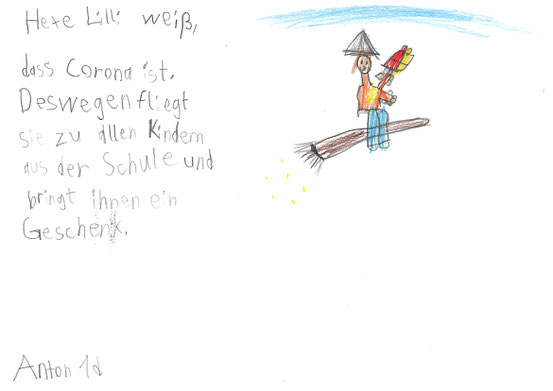 Hexe Lilli weiß,
dass Corona ist.
Deswegen fliegt
sie zu allen Kindern
aus der Schule und
bringt ihnen ein
Geschenk.
Anton 1d